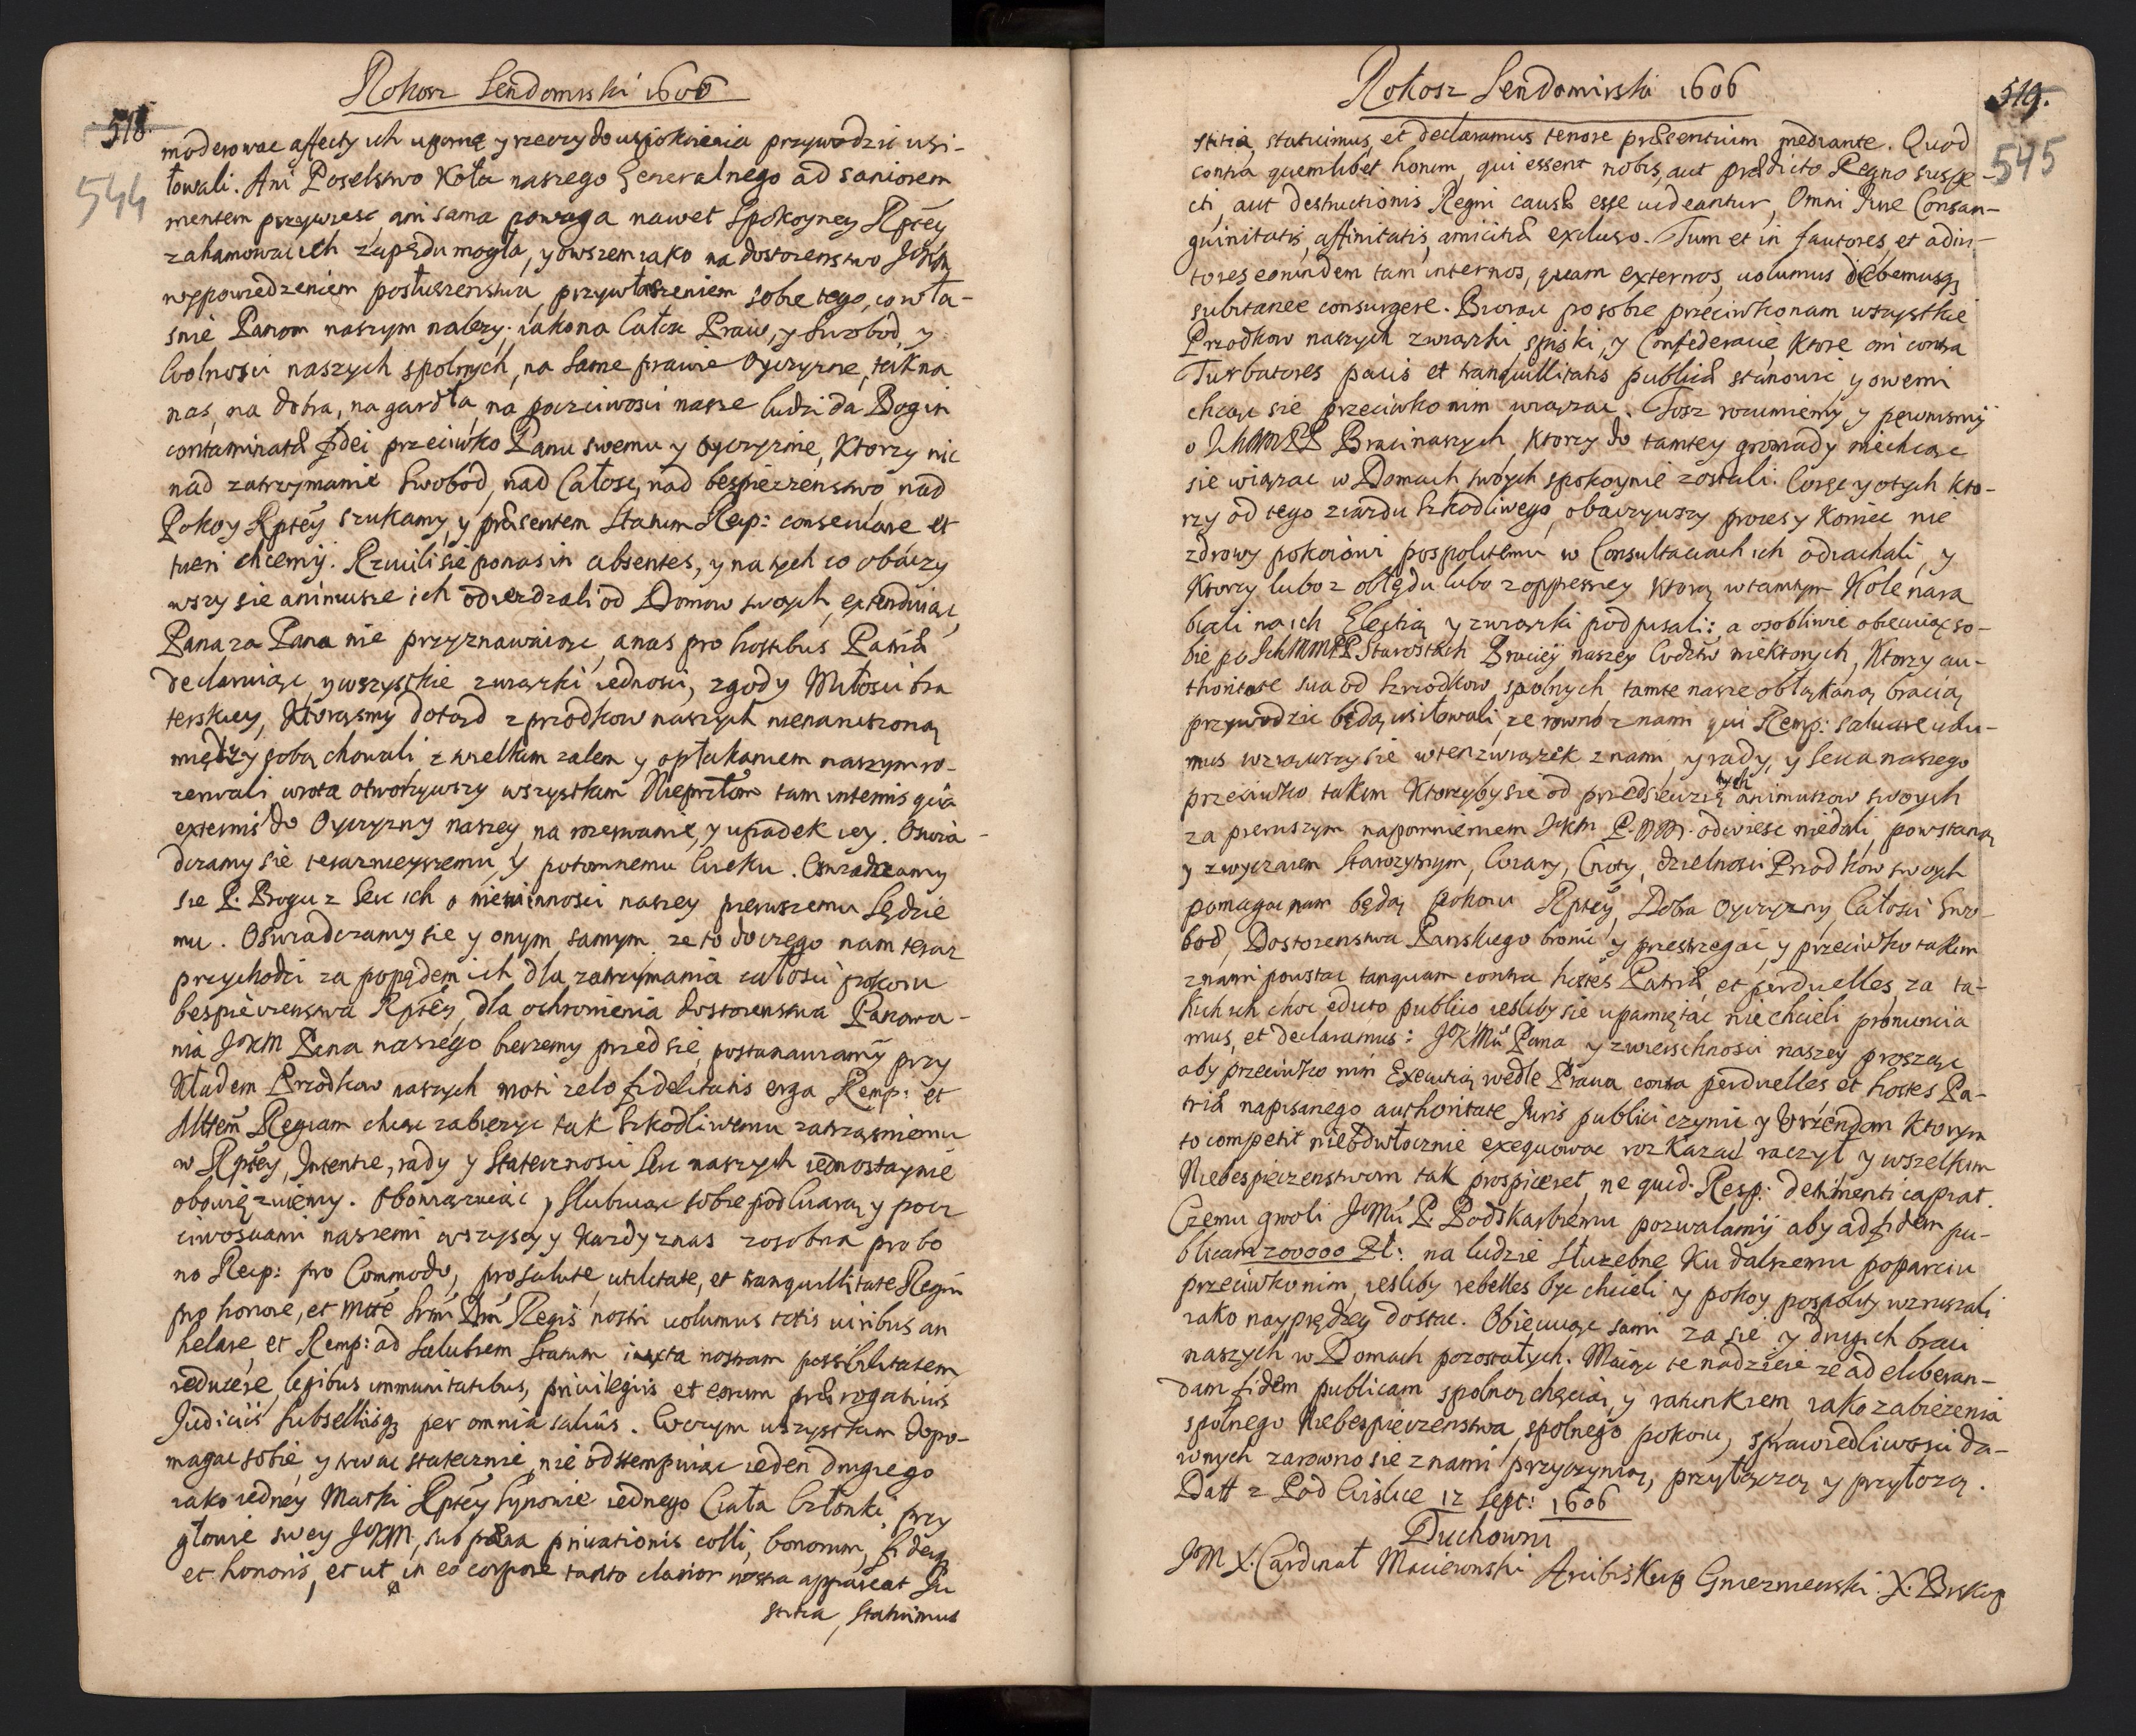 Rokosz Sendomirski 1606
518.
544
moderowac affecty ich uporne y rzeczy do uspokoienia przywodzic usi-
łowali. Ani Poselstwo Koła naszego Generalnego ad saniorem
mentem przywiesc, ani sama powaga nawet spokoyney Rptey
zahamowac ich zapędu mogła, y owszem iako na dostoienstwo JoKM
wypowiedzeniem posłuszenstwa, przywłaszeniem sobie tego, co wła-
snie Panom naszym nalezy; iako na Całosc Praw, y Swobod, y
Wolnosci naszych spolnych, na same prawie Oyczyzne, tak na
nas, na dobra, na gardła, na pocziwosci nasze ludzi da Bog in
contaminatæ fidei przeciwko Panu swemu y Oyczyznie, Ktorzy nic
nad zatrzymanie Swobod, nad Całosc, nad bespieczenstwo nad
Pokoy Rptey szukamy, y præsentem Statum Reip: conservare et
tueri chcemy. Rzucili sie po nas in absentes, y na tych co obaczy
wszy sie animusze ich odiezdzali od Domow swoych, extenduiąc,
Pana za Pana nie przyznawaiąc, a nas pro hostibus Patriæ
declaruiąc, y wszystkie związki iednosci, zgody Miłosci bra
terskiey, Ktorąsmy dotąd z przodkow naszych nienaruszoną
między sobą chowali, z wielkim zalem y opłakaniem naszym ro-
zerwali, wrota otworzywszy wszystkim Nieprzłom tam internis quā
externis do Oyczyzny naszey, na rozerwanie, y upadek iey. Oswia-
dczamy sie terazneyszemu y potomnemu wieku. Oswiadczamy
sie P. Bogu z Serc ich o niewinnosci naszey pierwszemu Sędzie
mu. Oswiadczamy sie y onym samym, ze to do czego nam teraz
przychodzi za popędem ich dla zatrzymania całosci pokoiu
bespieczenstwa Rptey, dla ochronienia dostoienstwa Panowa-
nia JoKM Pana naszego bierzemy przed sie, postanawiamy przy
kładem Przodkow naszych moti zelo fidelitatis erga Remp: et
Mttem Regiam chcąc zabiezyc tak szkodliwemu zatrząsnieniu
w Rptey, Intentie, rady y Statecznosci Serc naszych iednostaynie
obowięzuiemy. Obowiązuiąc y Slubuiąc sobie pod wiarą y pocz
ciwosciami naszemi wszyscy y kazdy z nas zosobna pro bo
no Reip: pro Commodo, pro salute, utilitate, et tranquillitate Regni
pro honore, et Mtte Srmi Dni Regis nostri volumus totis viribus an
helare, et Remp: ad Salubrem Statum iuxta nostram possibilitatem
reducere, legibus immunitatibus, privilegiis et eorum prærogativis
Judiciis Subselliisq; per omnia salvis. W czym wszystkim dopo-
magac sobie, y trwac statecznie, nie odstempuiąc ieden drugiego
iako iedney Matki Rptey Synowie iednego Ciała Członki, przy
głowie swey JoKM, sub pœna privationis colli, bonorum, fideiq;
et honoris, et ut in eo corpore tanto clarior nostra appareat Ju
stitia, statuimus
Rokosz Sendomirski 1606
519.
545
stitia, statuimus, et declaramus tenore præsentium mediante. Quod
contra quemlibet horum, qui essent nobis, aut prædicto Regno suspe-
cti, aut destructionis Regni causæ esse videantur, Omni Jure Consan-
guinitatis, affinitatis, amicitiæ excluso. Tum et in fautores, et adiu-
tores eorundem tam internos, quam externos, volumus debemusq;
subitanee consurgere. Biorąc po sobie przeciwko nam wszystkie
Przodkow naszych związki, spiski, y Confederacie, ktore oni contra
Turbatores pacis et tranquillitatis publicæ stanowic y owemi
chcąc sie przeciwko nim wiązac. Tosz rozumiemy, y pewnismy
o IchMMPP Braci naszych, Ktorzy do tamtey gromady niechcąc
sie wiązac w Domach swoych spokoynie zostali. Coz y o tych kto-
rzy od tego ziazdu szkodliwego, obaczywszy proces y koniec nie
zdrowy pokoiowi pospolitemu w Consultaciach ich odiachali, y
Ktorzy lubo z obłędu lubo z oppressiey ktorą w tamtym Kole nara
biali na ich Electią y związki podpisali: a osobliwie obiecuiąc so-
bie po IchMMPP. Starostach Braciey naszey wodzow niektorych, Ktorzy au-
thoritate sua od srzodkow spolnych tamte nasze obłąkaną bracią
przywodzic będą usiłowali, ze rowno z nami qui Remp: salvare volu-
mus wziąwszy sie w ten związek z nami, y rady, y serca naszego
przeciwko takim Ktorzyby sie od przedsięwziętych animuszow swoych
za pierwszym napomnieniem JoKM P.NM. odwiesc niedali, powstaną
y zwyczaiem Starozytnym, Wiary, Cnoty, dzielnosci Przodkow swoych
pomagac nam będą Pokoiu Rptey, Dobra Oyczyzny, Całosci Swo-
bod, Dostoienstwa Panskiego bronic y przestrzegac, y przeciwko takim
z nami powstac tanquam contra hostes Patriæ, et perduelles, za ta-
kich ich hoc edicto publico iesliby sie upamiętac niechcieli pronuncia
mus, et declaramus: JoKMci Pana y zwierzchnosci naszey prosząc
aby przeciwko nim Executią wedle Prawa contra perduelles et hostes Pa-
triæ napisanego authoritate Juris publici czynic y Urzendom Ktorym
to competit nieodwłocznie exequowac rozkazac raczył y wszelkim
Niebespieczenstwom tak prospiceret, ne quid Resp: detrimenti capiat.
Czemu gwoli JoMci P. Podskarbiemu pozwalamy aby ad fidem pu-
blicam 200000 Zł: na ludzie Słuzebne Ku dalszemu poparciu
przeciwko nim, iesliby rebelles byc chcieli y pokoy pospolity wzruszali
iako nayprędzey dostac. Obiecuiąc sami za sie y drugich braci
naszych w Domach pozostałych. Maiąc te nadzieie ze ad eliberan-
dam fidem publicam spolną chęcią, y ratunkiem, iako zabiezenia
spolnego Niebespieczenstwa, spolnego pokoiu, sprawiedliwosci da-
wnych zarowno sie z nami przyczynią, przyłączą y przyłozą.
Datt z Pod Wislice 12 Sept: 1606
Duchowni
JoM X. Cardinał Maciewoski Arcibiskup Gnieznienski. X. Biskup